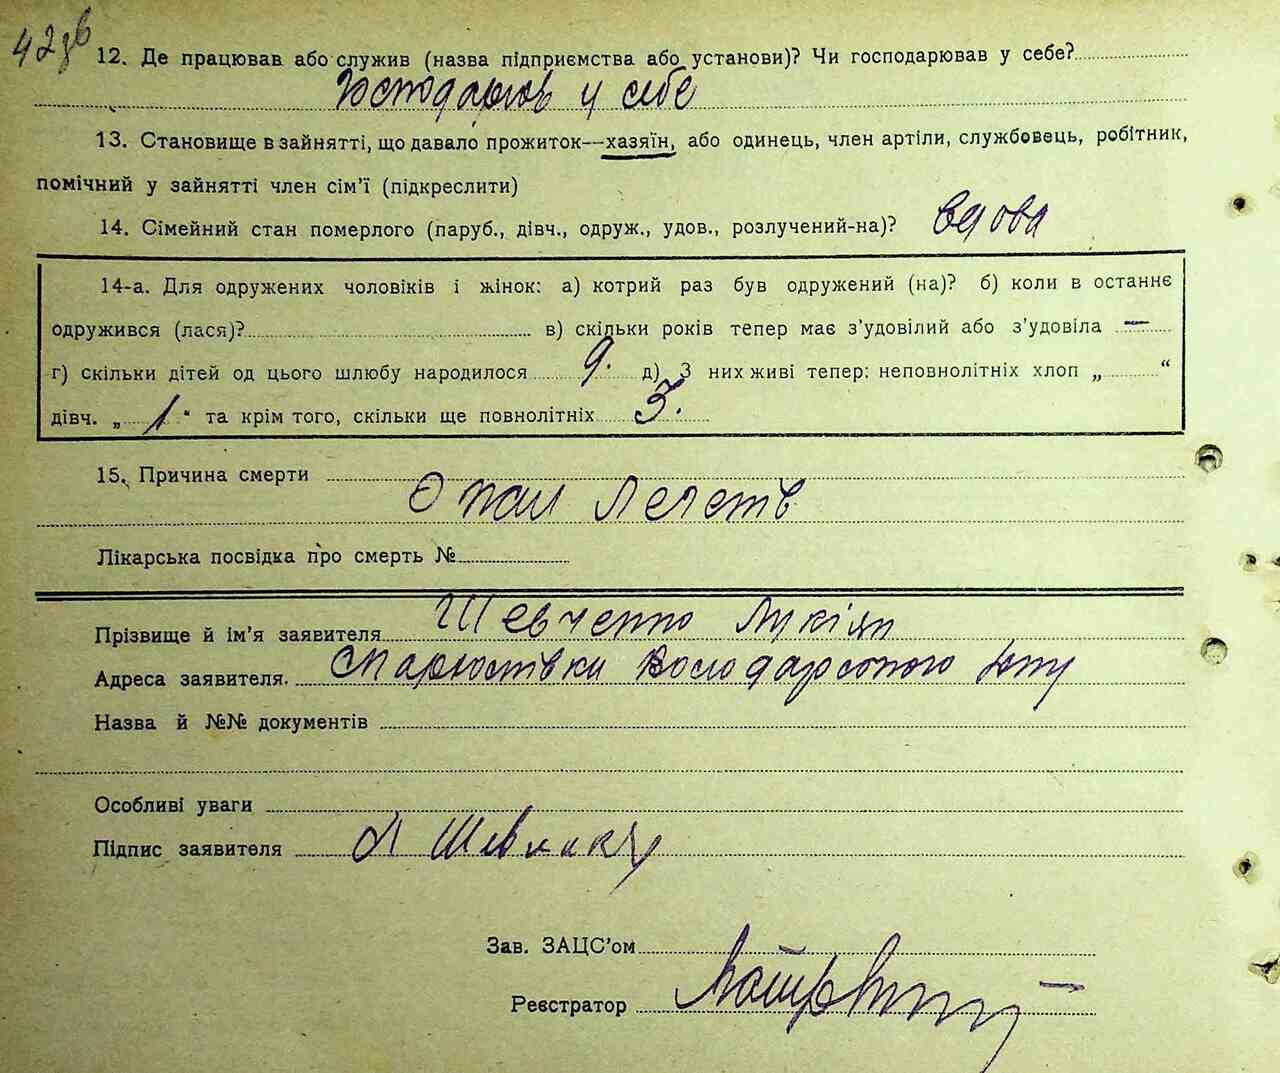 42зв
12. Де працював або служив (назва підприємства або установи)? Чи господарював у себе?
Господарюв у себе
13. Становище в зайнятті, що давало прожиток—хазяїн, або одинець, член артіли, службовець, робітник,
помічний у зайнятті член сім’ї (підкреслити)
14. Сімейний стан померлого (паруб., дівч., одруж., удов., розлучений-на)? вдова
14-а. Для одружених чоловіків і жінок: а) котрий раз був одружений (на)? б) коли в останнє
одружився (лася)? в) скільки років тепер має з’удовілий або з’удовіла —
г) скільки дітей од цього шлюбу народилося 9. д) З них живі тепер: неповнолітніх хлоп „ “
дівч. „ 1 “ та крім того, скільки ще повнолітніх 3.
15. Причина смерти
Лікарська посвідка про смерть №
Прізвище й ім’я заявителя Шевченко Лукіян
Адреса заявителя. Володарського
Назва й №№ документів
Особливі уваги
Підпис заявителя
Зав. ЗАЦС’ом
Реєстратор